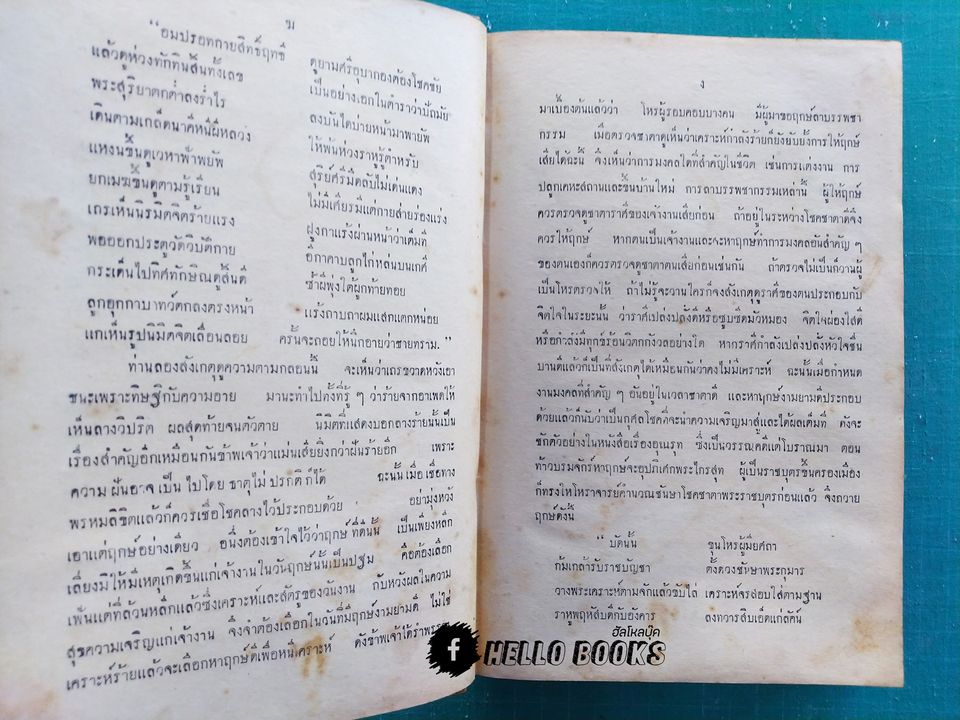 ฆ
“อมปรอทกายสิทธิ์ฤทธิ์ ดูยามศรีอุบากองต้องโชคชัย
แล้วดูห่วงทักทินสิ้นทั้งเลข เป็นอย่างเอกในตำราว่าปถมัย
พระสุริยาตกต่ำลงร่ำไร ลงบันไดบ่ายหน้ามาพายัพ
เดินตามเกล็ดนาคีหนีผีหลวง ให้พ้นห่วงราหูรู้ตำหรับ
แหงนขึ้นดูเวหาฟ้าพยัพ สุรีย์ศรีมืดลับไม่เด่นแดง
ยกเมฆขึ้นดูตามรู้เรียน ไม่มีเศียรมีแต่กายส่ายร่องแร่ง
เถรเห็นนิรมิตจิตร้ายแรง ฝูงกาแร้งผ่านหน้าว่าเต็มที
พอออกประตูวัดวิบัติกาย อีกาคาบลูกไก่หล่นบนเกศี
กระเด็นไปทิศทักษิณดูสิ้นดี ซ้ำผีพุ่งใต้ผูกทายทอย
ลูกอุกกาบาทว์ตกลงตรงหน้า แร้งถาบถาผมแสกแตกหน่อย
แกเห็นรูปนิมิตจิตเลื่อนลอย ครั้นจะถอยให้นึกอายว่าชายทราม.”
ท่านลองสังเกตุดูความตามกลอนนี้ จะเห็นว่าเถรขวาดหวังเอา
ชนะเพราะทิษฐิกับความอาย มานะทำไปทั้งที่รู้ ๆ ว่าร้ายจากอาเพดให้
เห็นลางวิปริต ผลสุดท้ายจนตัวตาย นิมิตที่แสดงบอกลางร้ายนั้นเป็น
เรื่องสำคัญอีกเหมือนกันข้าพเจ้าว่าแม่นเสียยิ่งกว่าฝันร้ายอีก เพราะ
ความ ฝันอาจ เป็น ไปโดย ธาตุไม่ ปรกติ ก็ได้ ฉะนั้น เมื่อ เชื่อทาง
พรหมลิขิตแล้วก็ควรเชื่อโชคลางไว้ประกอบด้วย อย่ามุ่งหวัง
เอาแต่ฤกษ์อย่างเดียว อนึ่งต้องเข้าใจไว้ว่าฤกษ์ ที่ดีนั้น เป็นเพียงหลีก
เลี่ยงมิให้มีเหตุเกิดขึ้นแก่เจ้างานในวันฤกษ์นั้นเป็นปฐม คือต้องเลือก
เฟ้นแต่ที่ล้วนหลีกแล้วซึ่งเคราะห์และสัตรูของวันงาน กับหวังผลในความ
สุขความเจริญแก่เจ้างาน จึงจำต้องเลือกในวันที่มีฤกษ์งามยามดี ไม่ใช่
เคราะห์ร้ายแล้วจะเลือกหาฤกษ์ดีเพื่อหนีเคราะห์ ดังข้าพเจ้าได้
ง
มาเบื้องต้นแล้วว่า โหรผู้รอบคอบบางคน มีผู้มาขอฤกษ์ลาบรรพชา
กรรม เมื่อตรวจชาตาดูเห็นว่าเคราะห์กำลังร้ายก็ยังยับยั้งการให้ฤกษ์
เสียได้ฉะนี้ จึงเห็นว่าการมงคลใดที่สำคัญในชีวิต เช่นการแต่งงาน การ
ปลูกเคหะสถานและขึ้นบ้านใหม่ การลาบรรพชากรรมเหล่านี้ ผู้ให้ฤกษ์
ควรตรวจดูชาตาราศีของเจ้างานเสียก่อน ถ้าอยู่ในระหว่างโชคชาตาดีจึง
ควรให้ฤกษ์ หากตนเป็นเจ้างานและจะหาฤกษ์ทำการมงคลอันสำคัญ ๆ
ของตนเองก็ควรตรวจดูชาตาตนเสียก่อนเช่นกัน ถ้าตรวจไม่เป็นก็วานผู้
เป็นโหรตรวจให้ ถ้าไม่รู้จะวานใครก็จงสังเกตุดูราศีของตนประกอบกับ
จิตใจในระยะนั้น ว่าราศีเปล่งปลั่งดีหรือซูบซีดมัวหมอง จิตใจผ่องใสดี
หรือกำลังมีทุกข์ร้อนวิตกกังวลอย่างใด หากราศีกำลังเปล่งปลั่งหัวใจชื่น
บานดีแล้วก็เป็นที่สังเกตุได้เหมือนกันว่าคงไม่มีเคราะห์ ฉะนั้นเมื่อกำหนด
งานมงคลที่สำคัญ ๆ อันอยู่ในเวลาชาตาดี และหาฤกษ์งามยามดีประกอบ
ด้วยแล้วก็นับว่าเป็นกุศลโชคที่จะนำความเจริญมาสู่และได้ผลเต็มที่ ดังจะ
ชักตัวอย่างในหนังสือเรื่องอุณรุท ซึ่งเป็นวรรณคดีแต่โบราณมา ตอน
ท้าวบรมจักร์หาฤกษ์จะอุปภิเศกพระไกรสุท ผู้เป็นราชบุตรขึ้นครองเมือง
ก็ทรงให้โหราจารย์คำนวณชันษาโชคชาตาพระราชบุตรก่อนแล้ว จึงถวาย
ฤกษ์ดังนี้
“บัดนั้น ขุนโหรผู้มียศถา
ก้มเกล้ารับราชบัญชา ตั้งดวงชันษาพระกุมาร
วางพระเคราะห์ตามจักรแล้วขับไล่ เคราะห์จรสอบใส่ตามฐาน
ราหูพฤหัสบดีกับอังคาร ลงทวารสิบเอ็ดแก่ลัคน์
ฮัลโหลบุ๊ค
f HELLO BOOKS